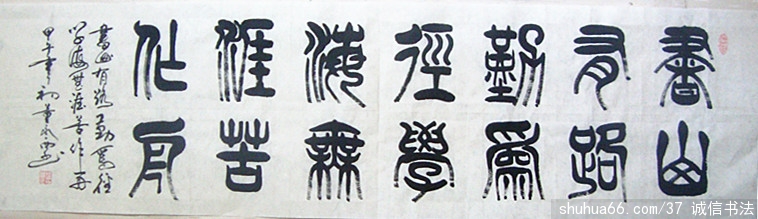 書山
有路
勤為
徑學
海無
涯苦
作舟
書山有路勤為徑
學海無涯苦作舟
甲午年初
shuhua66.com/37 诚信书法